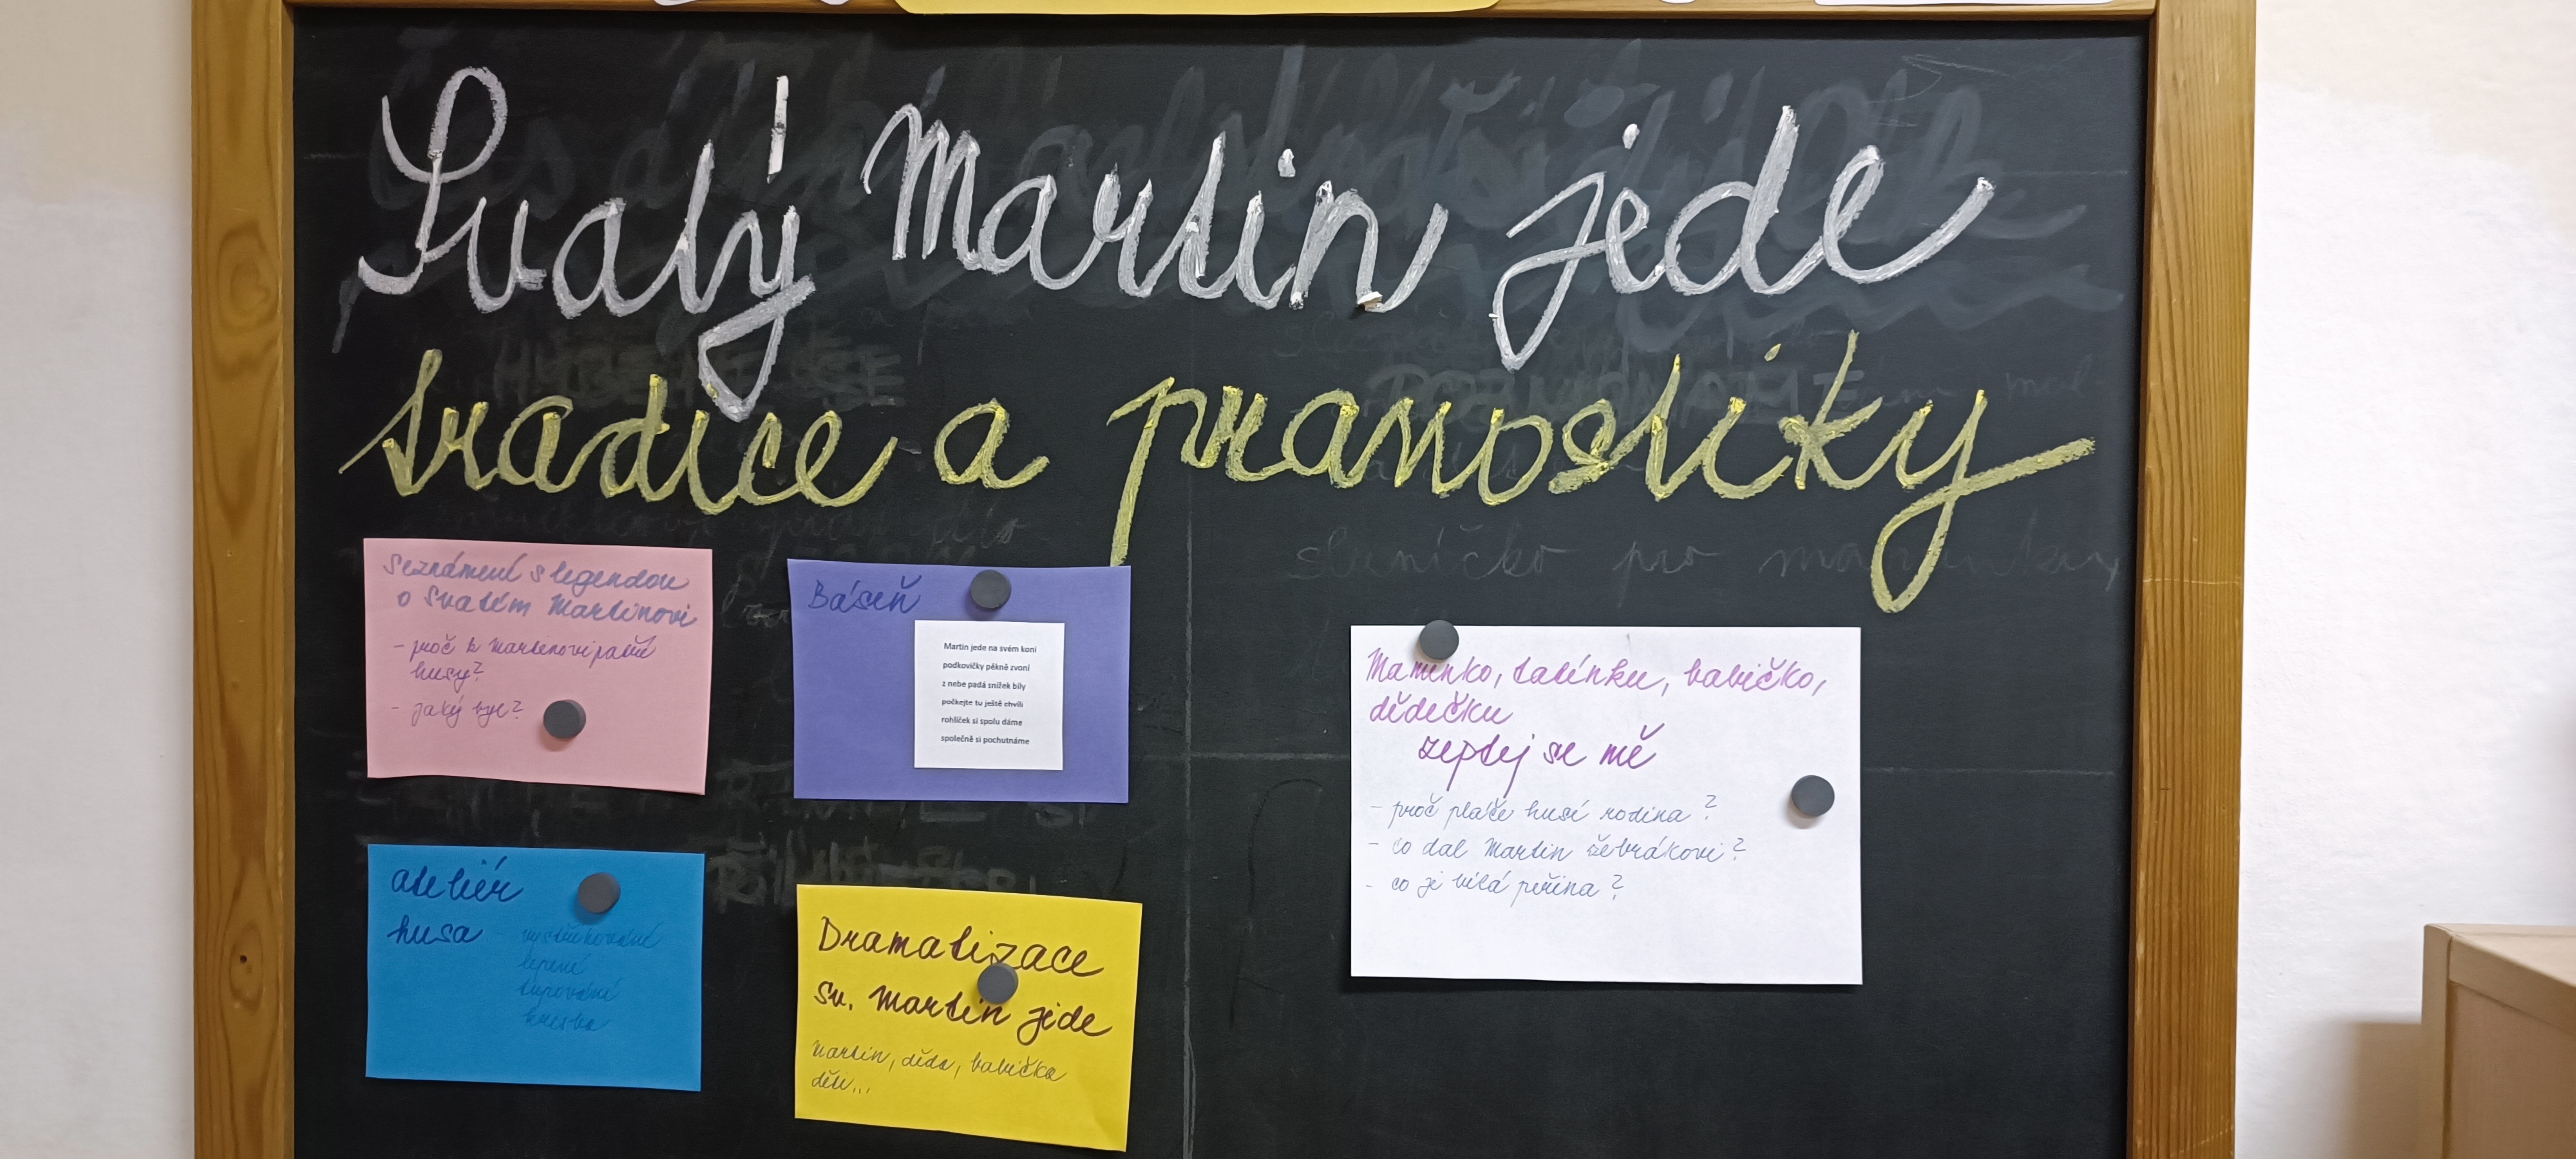 Svatý Martin jede
tradice a pranostiky
Seznámení s legendou
o Svatém Martinovi
- proč k Martinovi patří
husy?
- jaký byl?
Báseň
Martin jede na svém koni
podkovičky pěkně zvoní
z nebe padá snížek bílý
počkejte tu ještě chvíli
rohlíček si spolu dáme
společně si pochutnáme
ateliér
husa - vystřihování
lepení
tupování
kresba
Dramatizace
sv. Martin jede
Martin, děda, babička
děti...
Maminko, tatínku, babičko,
dědečku
zeptej se mě
- proč pláče husí rodina?
- co dal Martin žebrákovi?
- co je bílá peřina?
sluníčko pro maminku